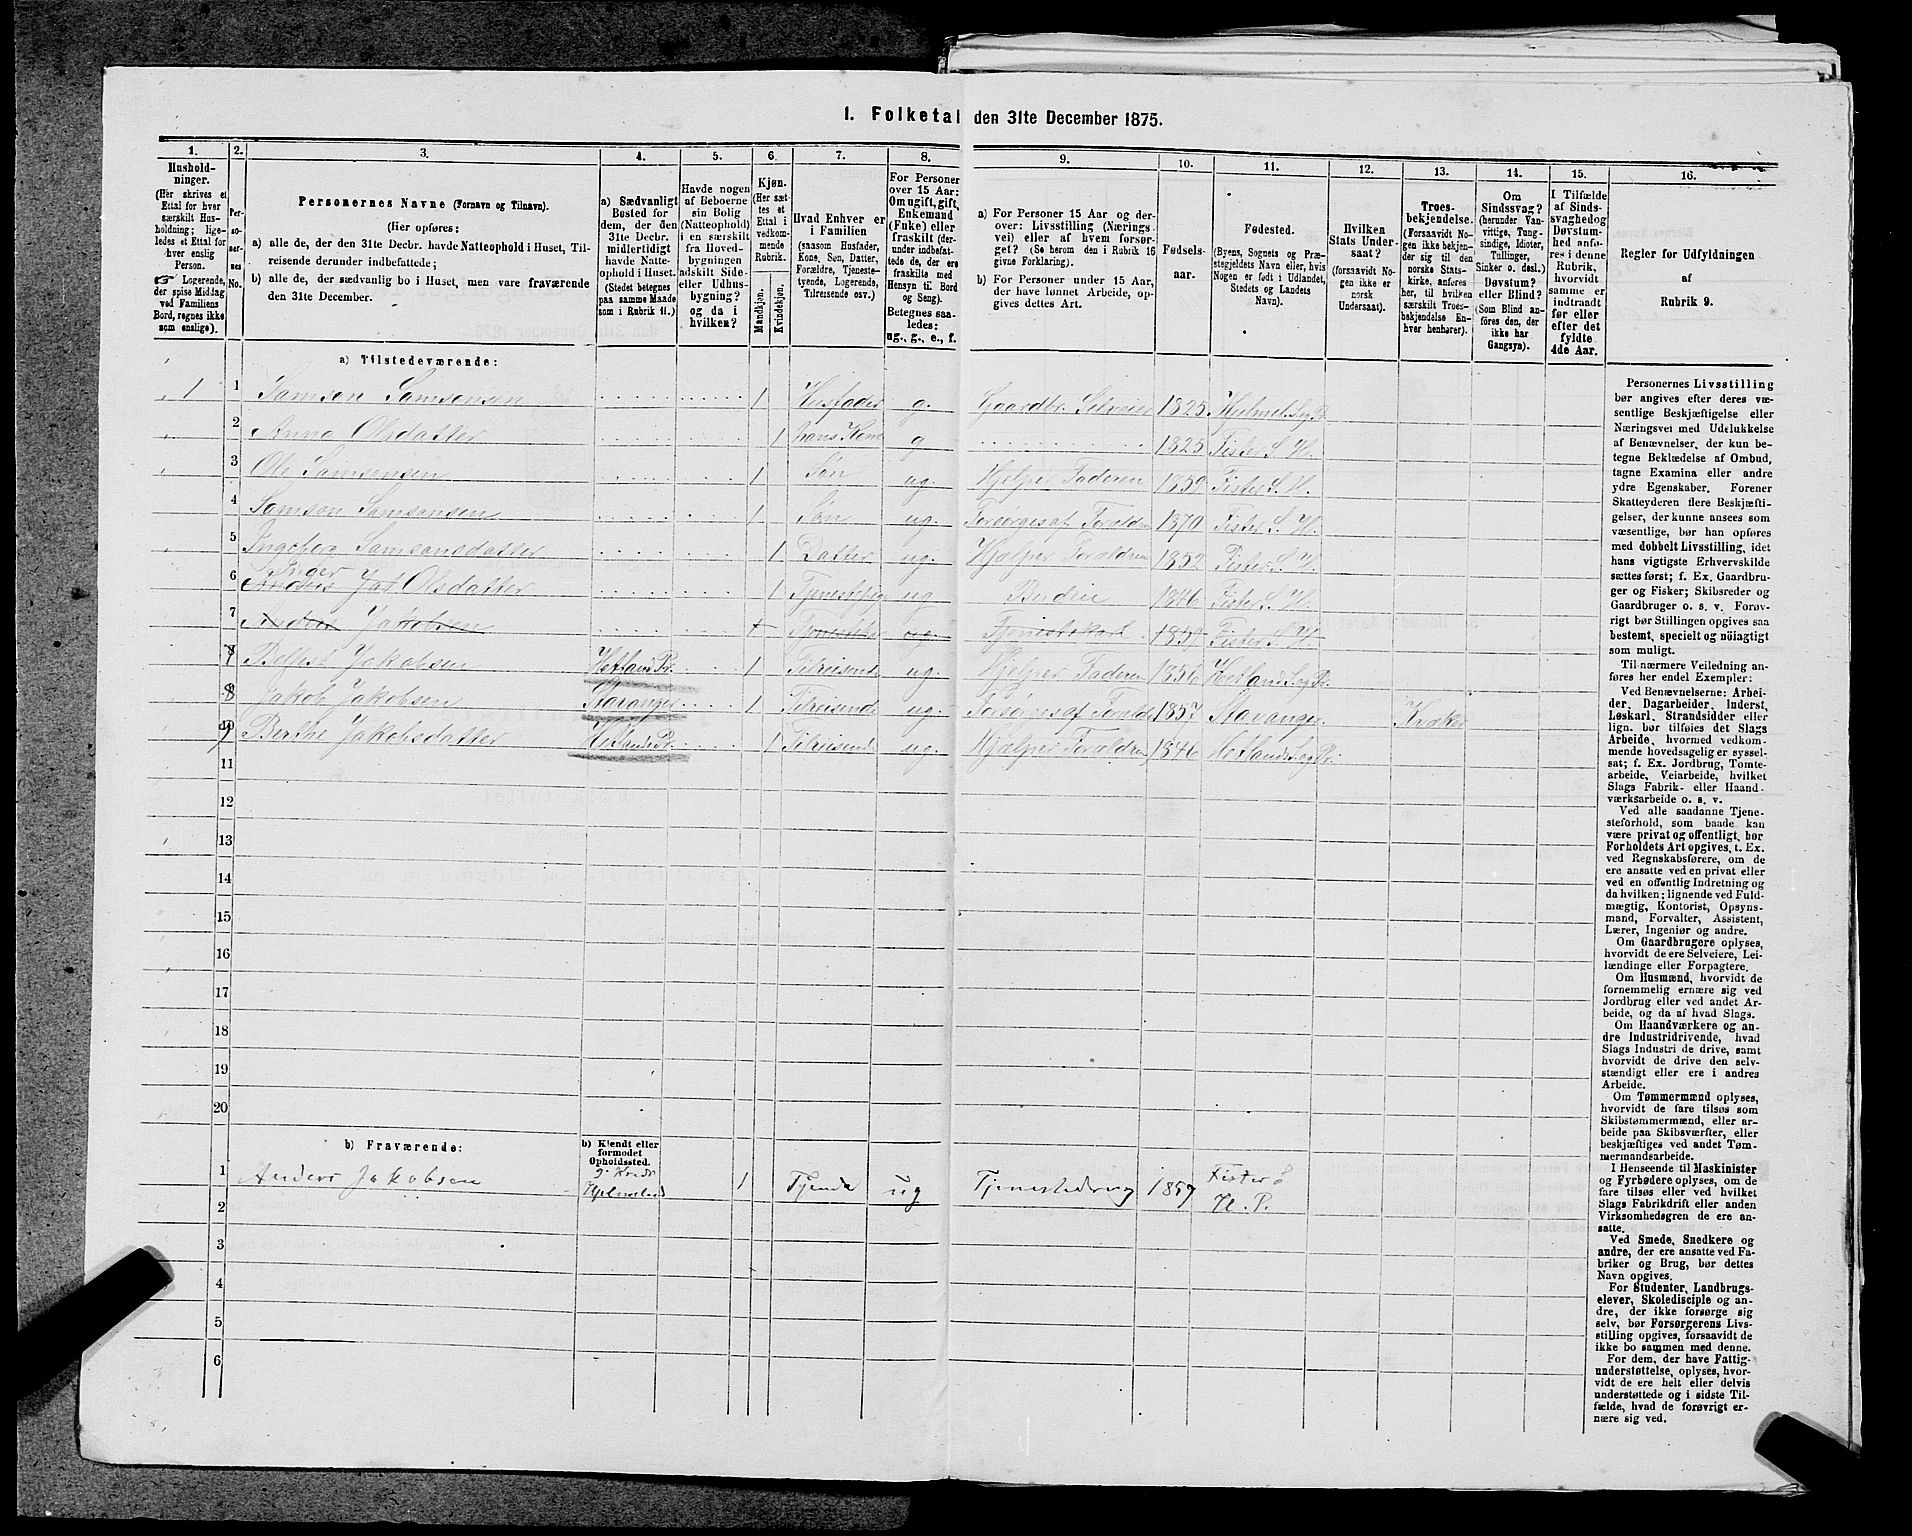 1. Folketal den 31te December 1875.
1. 2. 3. 4. 5. 6. 7. 8. 9. 10. 11. 12. 13. 14. 15. 16.
Hushold-
ninger.
(Her skrives et
Ettal for hver
særskilt Hus-
holdning; lige-
ledes et Ettal for
hver enslig
Person.
☞ Logerende,
der spise Middag
ved Familiens
Bord, regnes ikke
som enslige).
Per-
so-
ner-
nes
No.
Personernes Navne (Fornavn og Tilnavn).
(Her opføres:
a) alle de, der den 31te Decbr. havde Natteophold i Huset, Til-
reisende derunder indbefattede;
b) alle de, der sædvanlig bo i Huset, men vare fraværende
den 31te December.
a) Sædvanligt
Bosted for
dem, der den
31te Decbr.
midlertidigt
havde Natte-
ophold i Huset.
(Stedet betegnes
paa samme Maade
som i Rubrik 11.)
Havde nogen
af Beboerne
sin Bolig
(Natteophold)
i en særskilt
fra Hoved-
bygningen
adskilt Side-
eller Udhus-
bygning?
og da i
hvilken?
Kjøn.
(Her sæt-
tes et
Ettal i
vedkom-
mende
Rubrik.
Mandkjøn.
Kvindekjøn.
Hvad Enhver er
i Familien
(saasom Husfader,
Kone, Søn, Datter,
Forældre, Tjeneste-
tyende, Logerende,
Tilreisende osv.)
For Personer
over 15 Aar:
Om ugift, gift,
Enkemand
(Fuke) eller
fraskilt (der-
under indbefat-
tede de, der ere
fraskilte med
Hensyn til Bord
og Seng).
Betegnes saa-
ledes:
ug., g., e., f.
a) For Personer 15 Aar og der-
over: Livsstilling (Nærings-
vei) eller af hvem forsør-
get? (Se herom den i Rubrik 16
givne Forklaring).
b) For Personer under 15 Aar,
der have lønnet Arbeide, op-
gives dettes Art.
Fødsels-
aar.
Fødested.
(Byens, Sognets og Præ-
stegjeldets Navn eller, hvis
Nogen er født i Udlandet,
Stedets og Landets
Navn).
Hvilken
Stats Under-
saat?
(forsaavidt No-
gen ikke er
norsk
Undersaat).
Troes-
bekjendelse.
(Forsaavidt No-
gen ikke bekjen-
der sig til den
norske Stats-
kirke, anføres
her, til hvilken
særskilt Troes-
bekjendelse En-
hver henhører).
Om
Sindssvag?
(herunder Van-
vittige, Tung-
sindige, Idioter,
Tullinger,
Sinker o. desl.)
Døvstum?
eller Blind?
(Som Blind an-
føres den, der
ikke har
Gangsyn).
I Tilfælde
af Sinds-
svaghedog
Døvstum-
hed anfø-
res i denne
Rubrik,
hvorvidt
samme er
indtraadt
før eller
efter det
fyldte
4de Aar.
Regler for Udfyldningen
af
Rubrik 9.
a) Tilstedeværende:
1 1 Samson Samsonsen 1 Husfader g. Gaardbr. Selveier 1825 Hjelmel. S. og Pr.
2 Anna Olsdatter 1 hans Kone g 1825 Fister S. H.
3 Ole Samsonsen 1 Søn ug. Hjelper Faderen 1859 Fister S. H.
4 Samson Samsonsen 1 Søn ug. Forsørges af Foraldren 1870 Fister S. H.
5 Ingeborg Samsonsdatter 1 Datter ug. Hjelper Foraldrene 1852 Fister S. H.
Inger
6 Olsdatter 1 Tjenestepige ug Budeie 1846 Fister S. H.
7 Anders Jakobsen Tjenestekarl 1859 Fister S. H.
8 Jakobsen Hetland Pr. 1 Tilreisende ug. Hjelper Faderen 1856 Hetland S. og Pr.
Jakob Jakobsen Stavanger 1 Tilreisende ug. Forsørges af Forald 1857 Stavanger Kvæker
10 Berthe Jakobsdatter Hetlands Pr. 1 Tilreisende ug. Hjælper Foraldren 1846 Hetlands S. og Pr.
11
12
13
14
15
16
17
18
19
20
b) Fraværende:
b) Kjendt eller
formodet
Opholdssted.
1 Anders Jakobsen Hjelmeland 1 Tjende ug Tjenestedreng 1859 Fister S
H. P.
2
3
4
5
6
Personernes Livsstilling
bør angives efter deres væ-
sentlige Beskjæftigelse eller
Næringsvei med Udelukkelse
af Benævnelser, der kun be-
tegne Beklædelse af Ombud,
tagne Examina eller andre
ydre Egenskaber. Forener
Skatteyderen flere Beskjæfti-
gelser, der kunne ansees som
væsentlige, bør han opføres
med dobbelt Livsstilling, idet
hans vigtigste Erhvervskilde
sættes først; f. Ex. Gaardbru-
ger og Fisker; Skibsreder og
Gaardbruger o. s. v. Forøv-
rigt bør Stillingen opgives saa
bestemt, specielt og nøiagtigt
som muligt.
Til nærmere Veiledning an-
føres her endel Exempler:
Ved Benævnelserne: Arbei-
der, Dagarbeider, Inderst,
Løskarl, Strandsidder eller
lign. bør tilføies det Slags
Arbeide, hvormed vedkom-
mende hovedsagelig er syssel-
sat; f. Ex. Jordbrug, Tomte-
arbeide, Veiarbeide, hvilket
Slags Fabrik- eller Haand-
værksarbeide o. s. v.
Ved alle saadanne Tjene-
steforhold, som baade kan
være privat og offentligt, bør
Forholdets Art opgives, t. Ex.
ved Regnskabsførere, om de
ere ansatte ved en privat eller
ved en offentlig Indretning og
da hvilken; lignende ved Fuld-
mægtig, Kontorist, Opsyns-
mand, Forvalter, Assistent,
Lærer, Ingeniør og andre.
Om Gaardbrugere oplyses,
hvorvidt de ere Selveiere, Lei-
lændinge eller Forpagtere.
Om Husmænd, hvorvidt de
fornemmelig ernære sig ved
Jordbrug eller ved andet Ar-
beide, og da af hvad Slags.
Om Haandværkere og an-
dre Industridrivende, hvad
Slags Industri de drive, samt
hvorvidt de drive den selv-
stændigt eller ere i andres
Arbeide.
Om Tømmermænd oplyses,
hvorvidt de fare tilsøs som
Skibstømmermænd, eller ar-
beide paa Skibsværfter, eller
beskjæftiges ved andet Tøm-
mermandsarbeide.
I Henseende til Maskinister
og Fyrbødere oplyses, om de
fare tilsøs eller ved hvilket
Slags Fabrikdrift eller anden
Virksomhedsgren de ere an-
satte.
Ved Smede, Snedkere og
andre, der ere ansatte ved Fa-
briker og Brug, bør dettes
Navn opgives.
For Studenter, Landbrugs-
elever, Skoledisciple og an-
dre, der ikke forsørge sig
selv, bør Forsørgerens Livs-
stilling opgives, forsaavidt de
ikke bo sammen med denne.
For dem, der have Fattig-
understøttelse, oplyses, hvor-
vidt de ere helt eller delvis
understøttede og i sidste Til-
fælde, hvad de forøvrigt er-
nære sig ved.